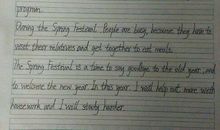 program.
During the Spring Festival. People are busy, because they have to
visit their relatives and get together to eat meals.
The Spring Festival is a time to say goodbye to the old year, and
to welcome the new year. In this year. I will help out more with
housework and I will study harder.